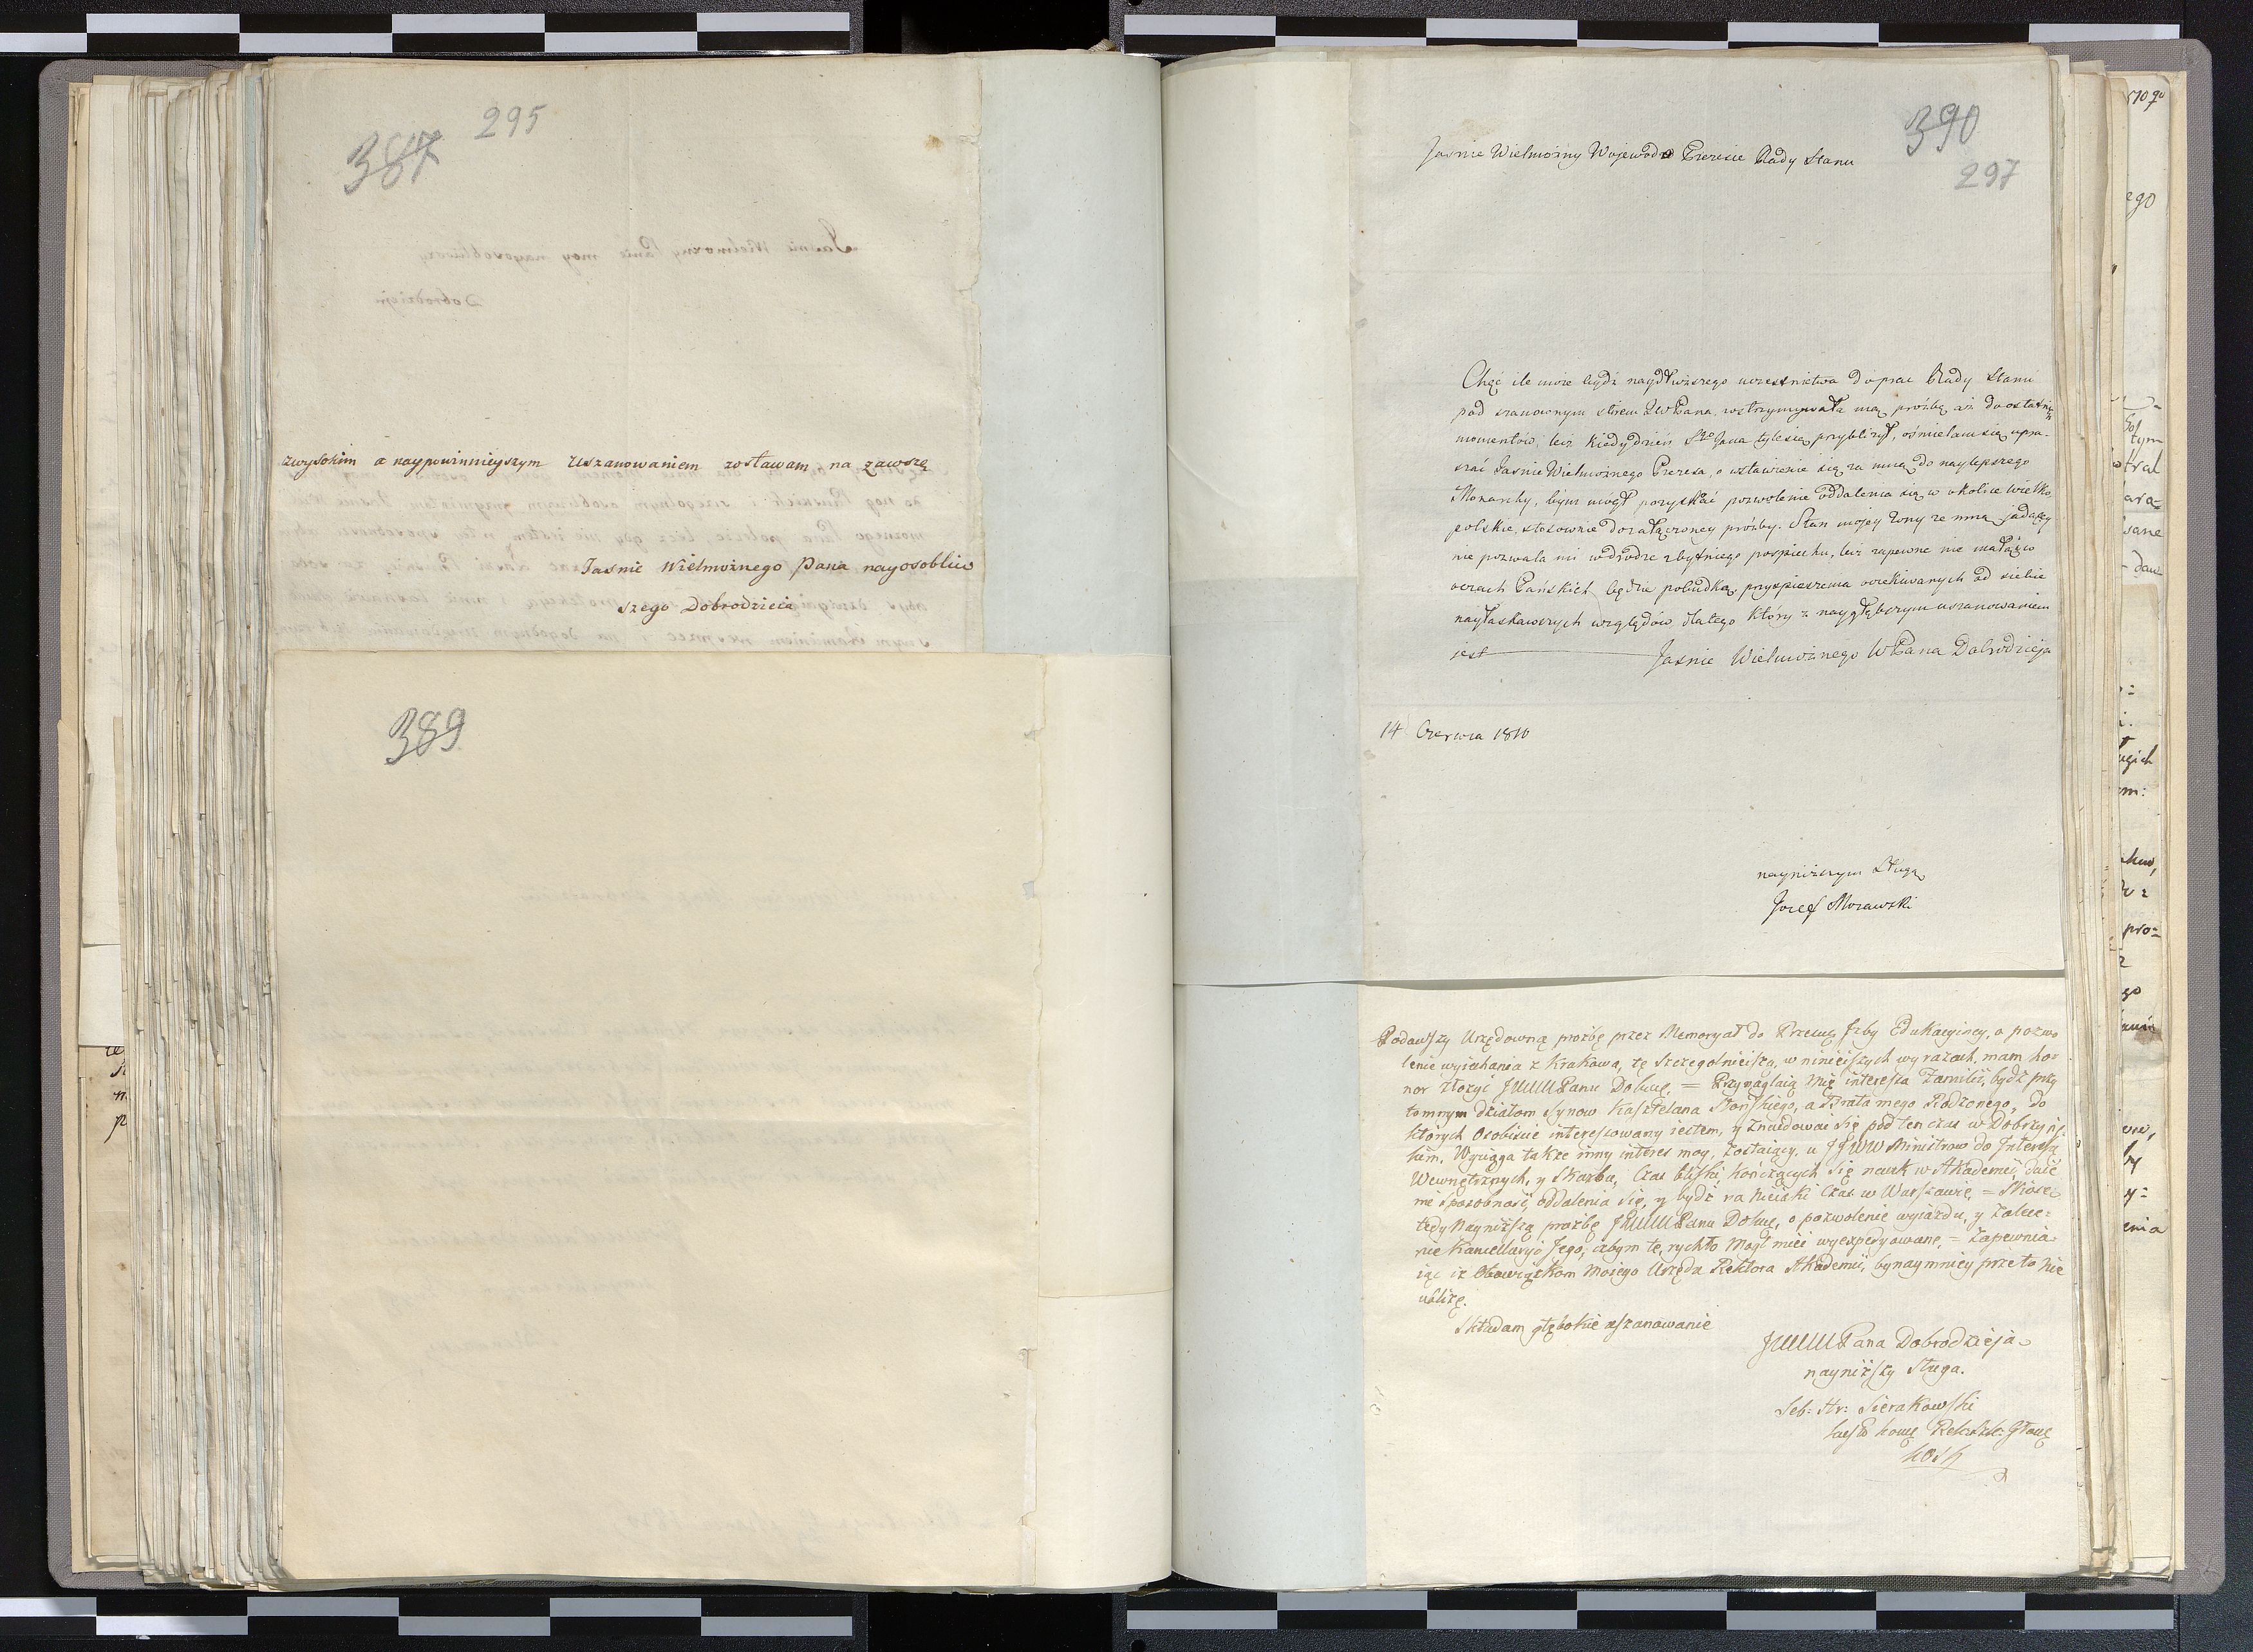 295
387
zwysokim a naypowinnieyszym Uszanowaniem zostawam na zawszę
Jasnie Wielmożnego Pana nayosobliw
szego Dobrodzieia
389
390
297
Jaśnie Wielmożny Wojewodo Prezesie Rady Stanu
Chęć ile może bydź naydłuższego uczestnictwa do prac Rady Stanu
pod szanownym sterem JWPana, wstrzymywała mą prośbę aż do ostatnich
momentów, lecz kiedy dzień Sgo Jana tyle się przybliżył, ośmielam się upra-
szać Jaśnie Wielmożnego Prezesa, o wstawienie się za mną do naylepszego
Monarchy, bym mógł pozyskać pozwolenie oddalenia się w okolice wielko
polskie, stosownie do załączoney prośby. Stan mojey żony ze mną jadącey
nie pozwala mi w drodze zbytniego pospiechu, lecz zapewne nie małą w
oczach Pańskich będzie pobudką przyspieszenia oczekiwanych od siebie
nayłaskawszych względów dlatego który z naygłębszym uszanowaniem
jest Jaśnie Wielmożnego WPana Dobrodzieja
14 Czerwca 1810
nayniższym Sługą
Jozef Morawski
Podawszy Urzędowną prozbę przez Memoryał do Przeswę Jzby Edukacyiney, o pozwo
lenie wyiechania z Krakowa, tę szczegolnieiszą, w ninieiszych wyrazach, mam ho-
nor złożyć JWWPanu Dobwę. = Przynaglaią mię interessa Familii, bydź przy
tomnym działom Synow Kasztelana Słońskiego, a Brata mego Rodzonego, do
ktorych Osobiscie interessowany iestem, y znaidować się pod ten czas w Dobrzyńs
kim. Wyciąga także inny interes moy, zostaiący u JJWW Ministrow do Interessów
Wewnętrznych, y Skarbu, Czas bliski kończących się nauk w Akademii, daie
mi sposobność oddalenia się, y bydź na nieiaki Czas w Warszawie, = Niosę
tedy Nayniższą prozbę JWWPanu Dobwę, o pozwolenie wyiazdu, y zalece=
nie Kancellaryi Jego, ażbym te, rychło Mogł mieć wyexpedyowane, = Zapewnia-
iąc iż Obowiązkom Moiego Urzędu Rektora Akademii, bynaymniey przeto nie
ubliżę.
Składam głębokie uszanowanie
JWWPana Dobrodzieja
nayniższy Sługa.
Seb: Hr: Sierakowski